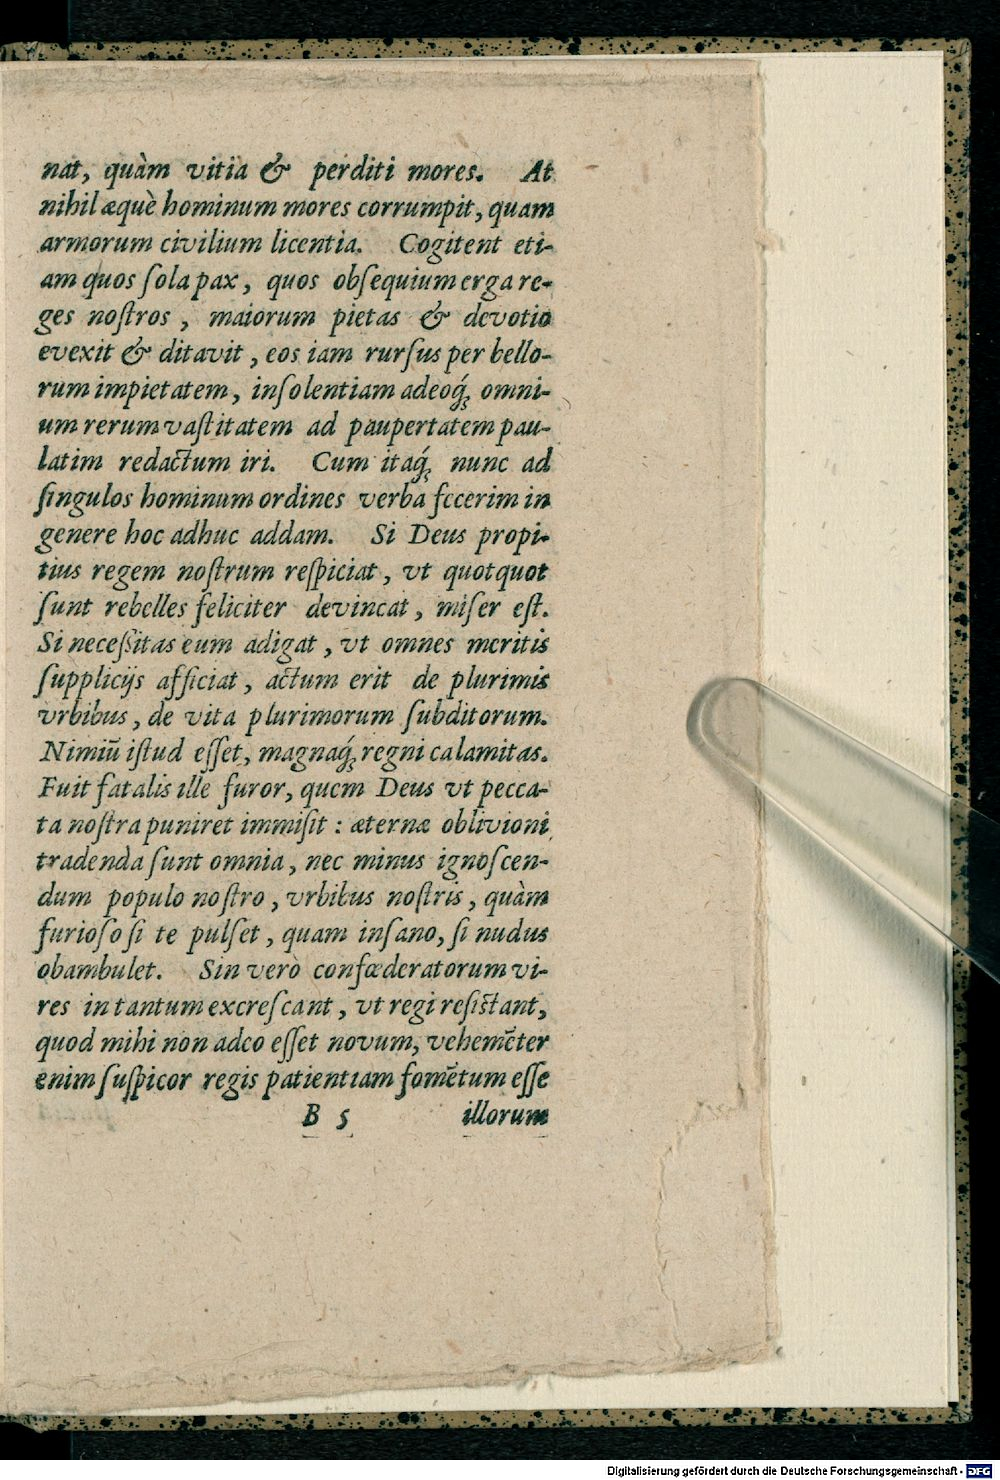 nat, quàm vitia & perditi mores. At
nihil æquè hominum mores corrumpit, quam
armorum civilium licentia. Cogitent eti-
am quos ſola pax, quos obſequium erga re-
ges noſtros, maiorum pietas & devotio
evexit & ditavit, eos iam rurſus per bello-
rum impietatem, inſolentiam adeoq́; omni-
um rerum vaſtitatem ad paupertatem pau-
latim redactum iri. Cum itaq́; nunc ad
ſingulos hominum ordines verba fecerim in
genere hoc adhuc addam. Si Deus propi-
tius regem noſtrum reſpiciat, vt quotquot
ſunt rebelles feliciter devincat, miſer eſt.
Si neceſſitas eum adigat, vt omnes meritis
ſupplicijs afficiat, actum erit de plurimis
vrbibus, de vita plurimorum ſubditorum.
Nimiũ iſtud eſſet, magnaq́; regni calamitas.
Fuit fatalis ille furor, quem Deus vt pecca-
ta noſtra puniret immiſit: æternæ oblivioni
tradenda ſunt omnia, nec minus ignoſcen-
dum populo noſtro, vrbibus noſtris, quàm
furioſo ſi te pulſet, quam inſano, ſi nudus
obambulet. Sin verò confœderatorum vi-
res in tantum excreſcant, vt regi reſiſtant,
quod mihi non adeo eſſet novum, vehemẽter
enim ſuſpicor regis patientiam fomẽtum eſſe
B 5 illorum
Digitalisierung gefördert durch die Deutsche Forschungsgemeinschaft - DFG